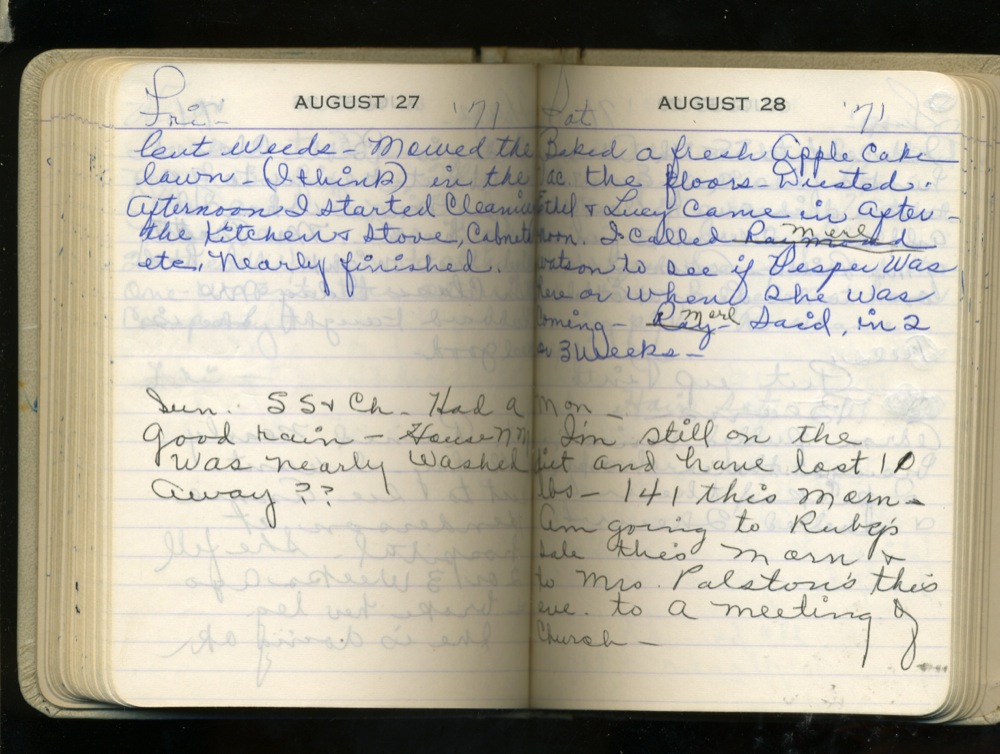 AUGUST 27
Fri- '71
Cut Weeds - Mowed the
lawn - (I think) in the
Afternoon I started Cleaning
the Kitchen & Stove, Cabnets
etc, Nearly finished.
Sun. S S & Ch. Had a
Good rain -
Was nearly Washed
Away ??
AUGUST 28
Sat '71
Baked a fresh Apple Cake
ac the floors - Dusted.
Ethel & Lucy Came in After-
noon. I called Raymond Merl
Watson to see if Vesper Was
here or when she was
Coming - Ray Merl - Said, in 2
or 3 Weeks -
Mon -
I'm still on the
diet and have lost 10
lbs - 141 this Morn -
Am going to Ruby's
Sale this Morn &
to Mrs. Palston's this
eve. to a meeting of
Church -